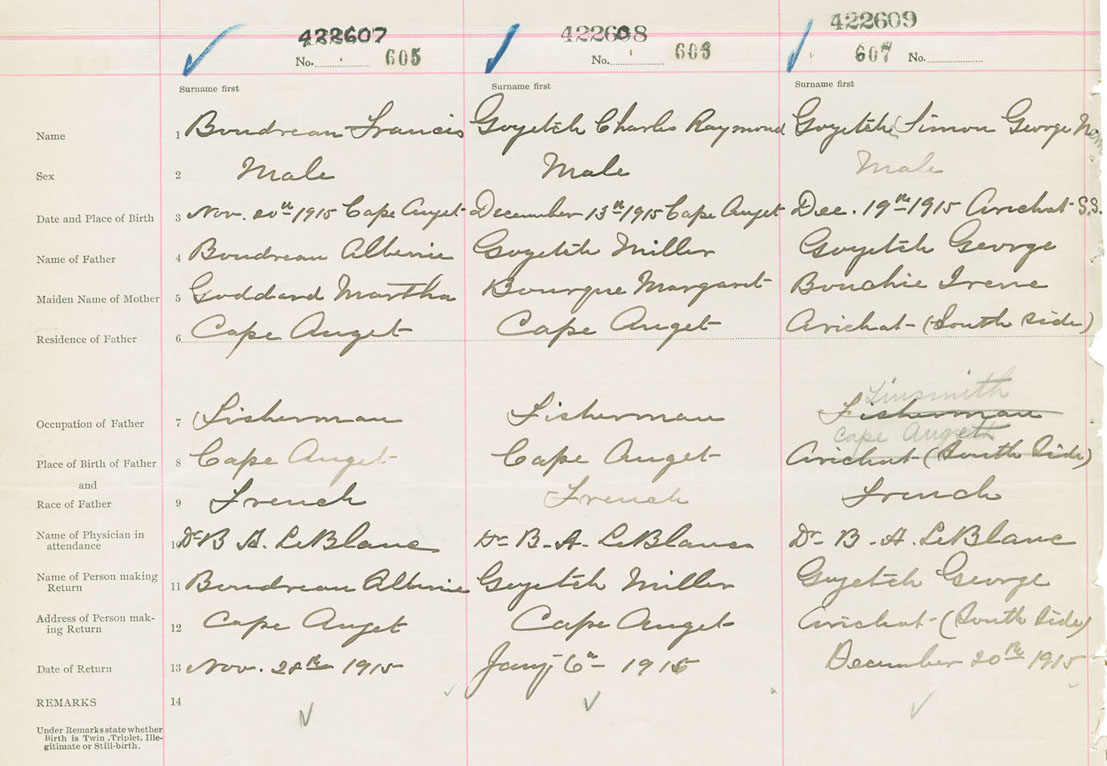 422607 422608 422609
No. 605 No. 606 607 No.
Surname first Surname first Surname first
Name 1 Boudreau Francis Goyetch Charles Raymond Goyetche Simon George
Sex 2 Male Male Male
Date and Place of Birth 3 Nov. 20th 1915 Cape Auget December 13th 1915 Cape Auget Dec. 19th 1915 Arichat S.S.
Name of Father 4 Boudreau Albenie Goyetch Miller Goyetch George
Maiden Name of Mother 5 Goddard Martha Bourque Margaret Bouchie Irene
Residence of Father 6 Cape Auget Cape Auget Arichat (South Side)
Tinsmith
Occupation of Father 7 Fisherman Fisherman Fisherman
Cape Auget
Place of Birth of Father 8 Cape Auget Cape Auget Arichat (South Side)
and
Race of Father 9 French French French
Name of Physician in attendance 10 Dr B A. LeBlanc Dr B. A. LeBlanc Dr B. A. LeBlanc
Name of Person making Return 11 Boudreau Albenie Goyetch Miller Goyetch George
Address of Person making Return 12 Cape Auget Cape Auget Arichat (South Side)
Date of Return 13 Nov. 28th 1915 Jany 6th 1916 December 20th 1915
REMARKS 14
Under Remarks state whether
Birth is Twin, Triplet, Ille-
gitimate or Still-birth.